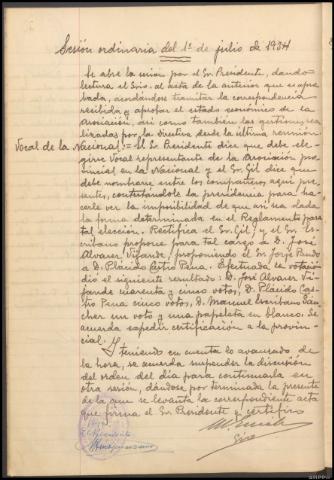 Sesión ordinaria del 1º de julio de 1934
Se abre la sesión por el Sr. Presidente, dando
lectura el Srio. al acta de la anterior que es apro
bada, acordándose tramitar la correspondencia
recibida y aprobar el estado económico de la
asociación, así como también las gestiones rea
lizadas por la Directiva desde la última reunión
Vocal de la Nacional.= El Sr. Presidente dice que debe ele-
girse Vocal representante de la Asociación pro
vincial en la Nacional y el Sr. Gil dice que
debe nombrarse entre los compañeros aquí pre
sentes, contestándole la presidencia para ha-
cerle ver la imposibilidad de que así sea dada
la forma determinada en el Reglamento para
tal elección. Rectifica el Sr. Gil y el Sr. Es-
cribano propone para tal cargo a D. José
Alvarez Vifande, proponiendo el Sr. Jorge Pardo
a D. Plácido Castro Pena. Efectuada la votación
dió el siguiente resultado: D. José Alvarez Vi-
fande cuarenta y cinco votos, D. Plácido Cas-
tro Pena cinco votos, D. Manuel Escribano San-
cher un voto y una papeleta en blanco. Se
acuerda expedir certificación a la provin-
cial.
Y teniendo en cuenta lo avanzado de
la hora, se acuerda suspender la discusión
del orden del día para continuarla en
otra sesión, dándose por terminada la presente
de la que se levanta la correspondiente acta
que firma el Sr. Presidente y certifico
El Presidente
Srio.